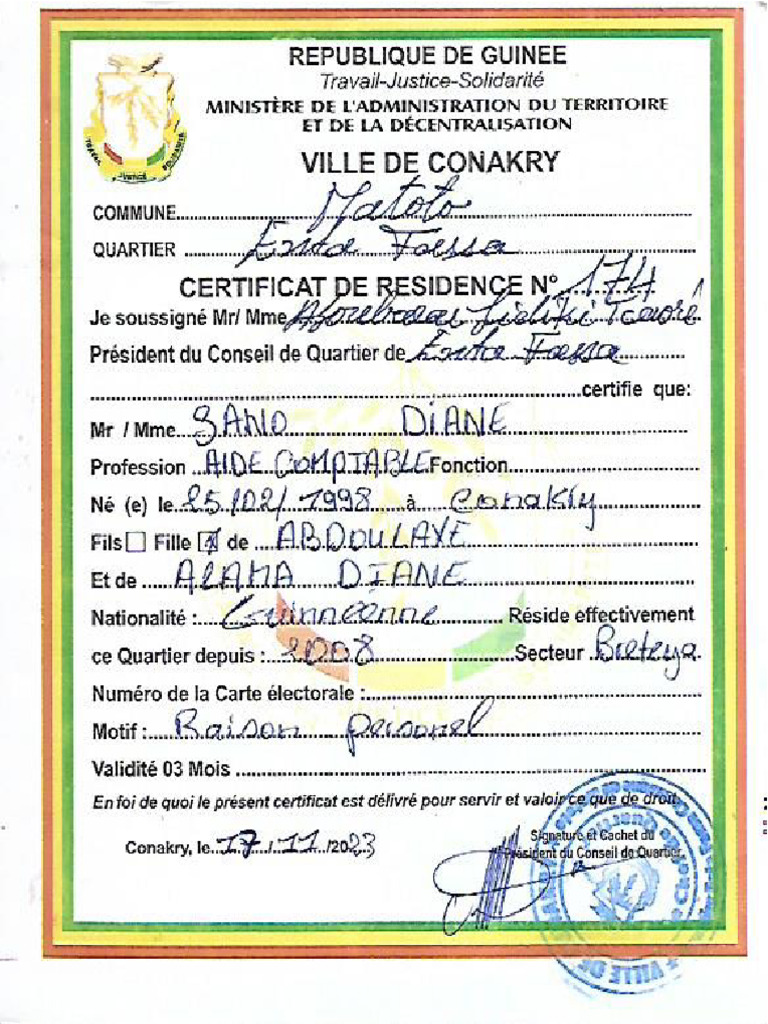 REPUBLIQUE DE GUINEE
Travail-Justice-Solidarité
MINISTÈRE DE L'ADMINISTRATION DU TERRITOIRE
ET DE LA DÉCENTRALISATION
VILLE DE CONAKRY
COMMUNE Matoto
QUARTIER Enta Fassa
CERTIFICAT DE RESIDENCE N° 174
Je soussigné Mr/ Mme
Président du Conseil de Quartier de Enta Fassa
certifie que:
Mr / Mme SANO DIANE
Profession AIDE COMPTABLE Fonction
Né (e) le 25/02/1998 à Conakry
Fils Fille de ABDOULAYE
Et de ALAMA DIANE
Nationalité : Guinnéénne Réside effectivement
ce Quartier depuis : 2008 Secteur
Numéro de la Carte électorale :
Motif : Raison personel
Validité 03 Mois
En foi de quoi le présent certificat est délivré pour servir et valoir ce que de droit.
Conakry, le 17/11/2023
Signature et Cachet du
Président du Conseil de Quartier
VILLE DE